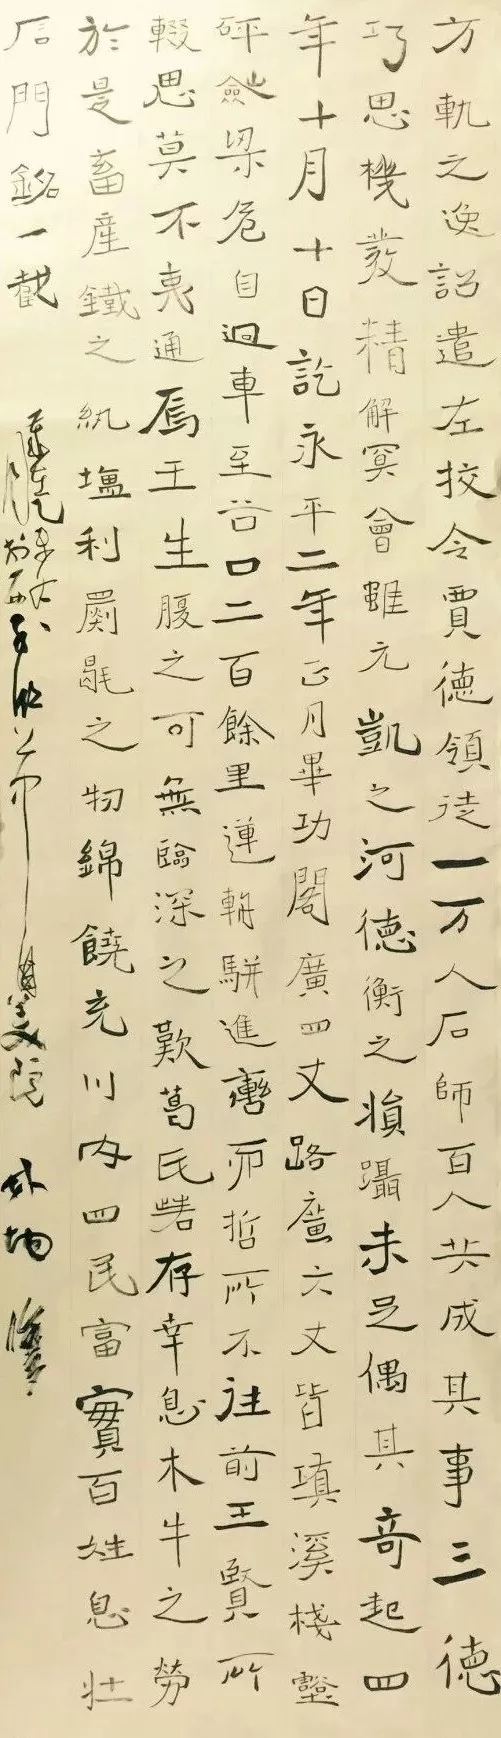 方軌之逸詔遣左挍令賈德領徒一万人石師百人共成其事三德
巧思機發精解冥會雖元凱之河德衡之損躡未足偶其奇起四
年十月十日訖永平二年正月畢功閣廣四丈路廣六丈皆填溪棧壑
砰嶮梁危自迥車至谷口二百餘里連輈駢進轡而哲所不往前王賢所
輟思莫不夷通焉王生履之可無臨深之歎葛氏若存幸息木牛之勞
於是畜產鐵之紈塩利罽毼之物錦饒充川內四民富實百姓息壯
石門銘一截